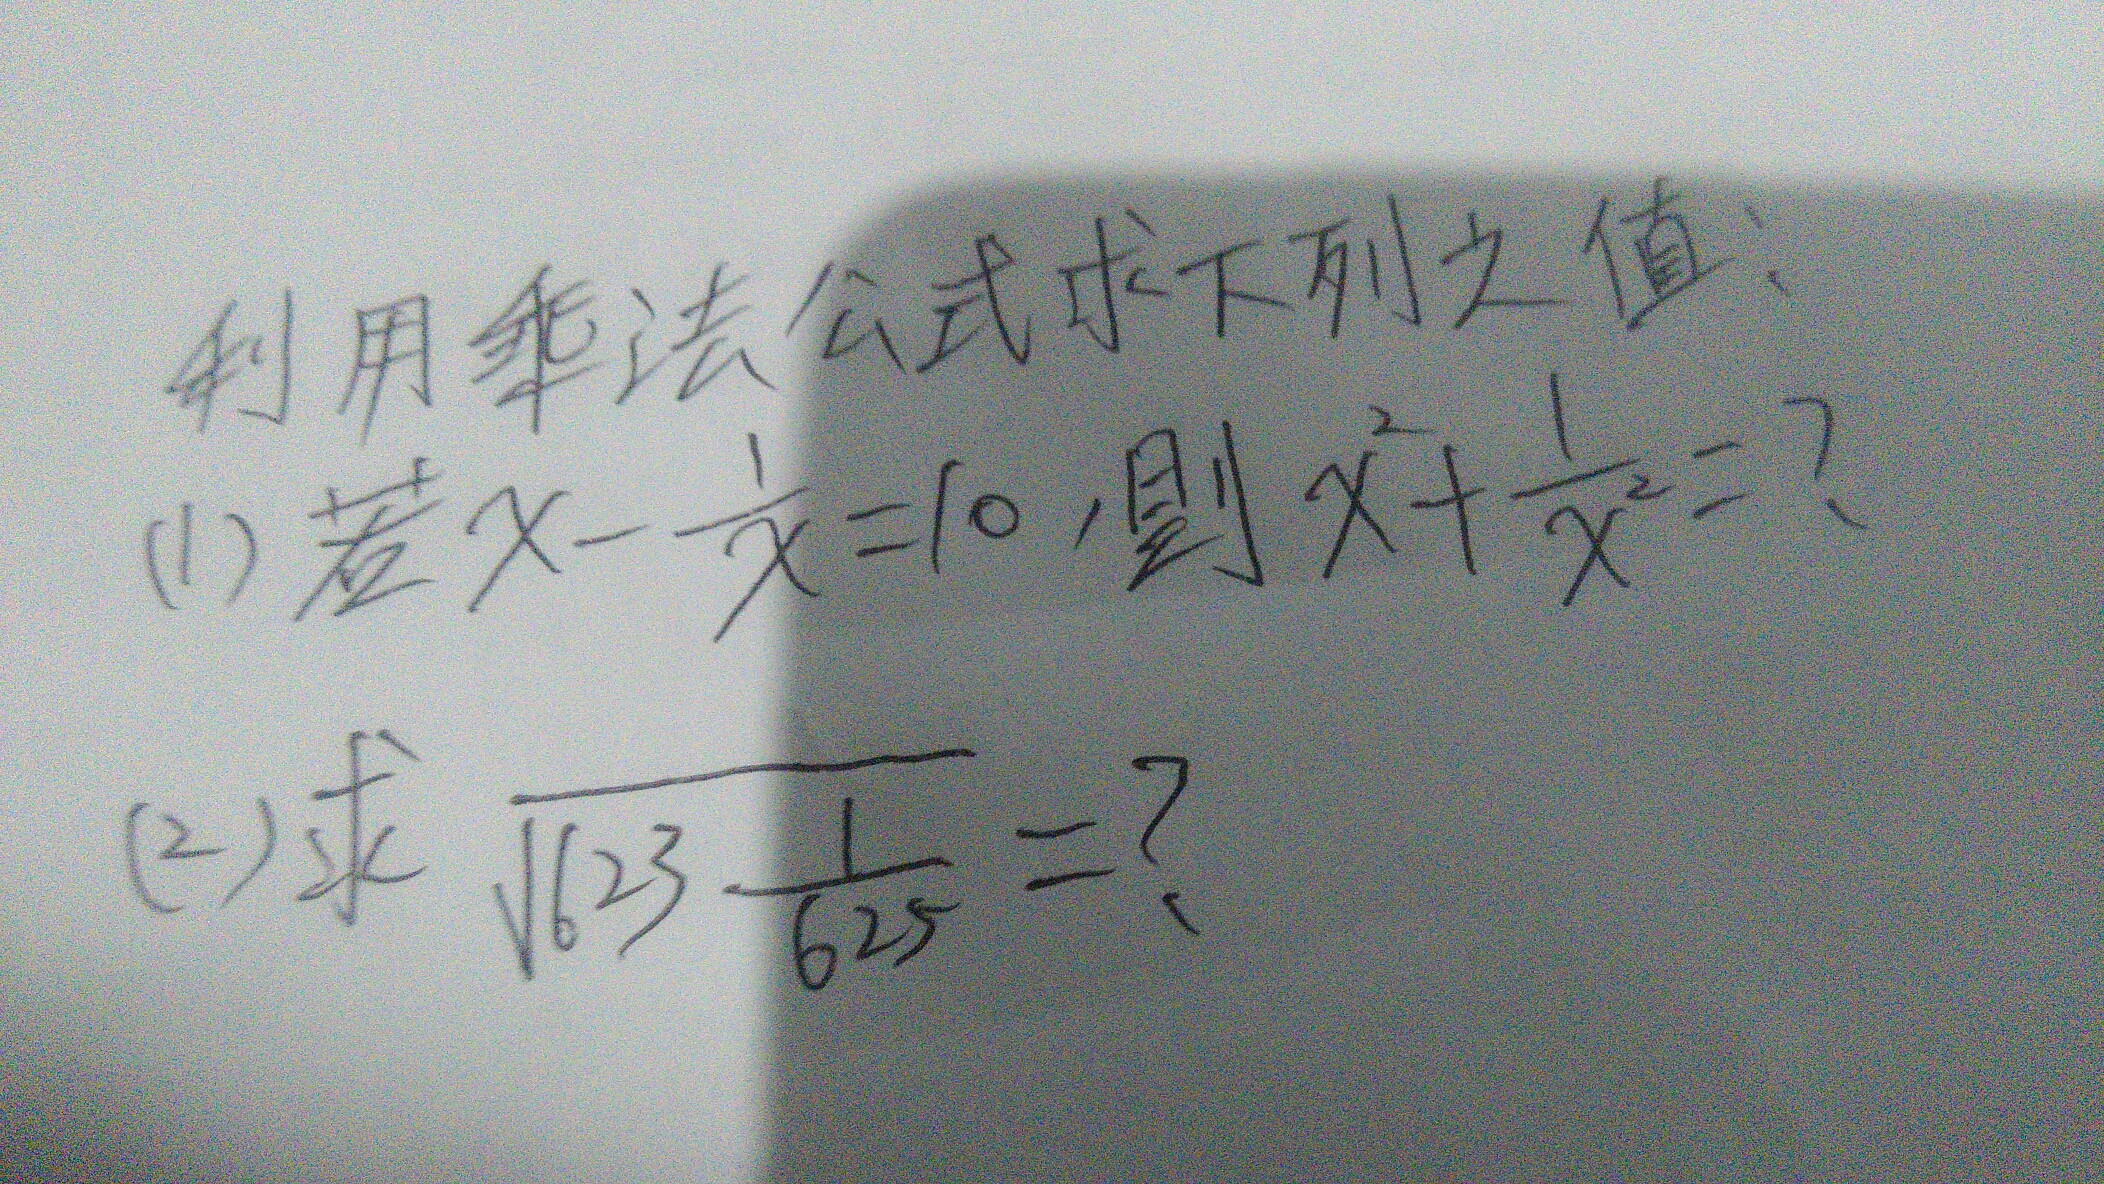 利用乘法公式求下列之值:
(1) 若 x - 1/x = 10, 則 x² + 1/x² = ?
(2) 求 √(623 1/625) = ?